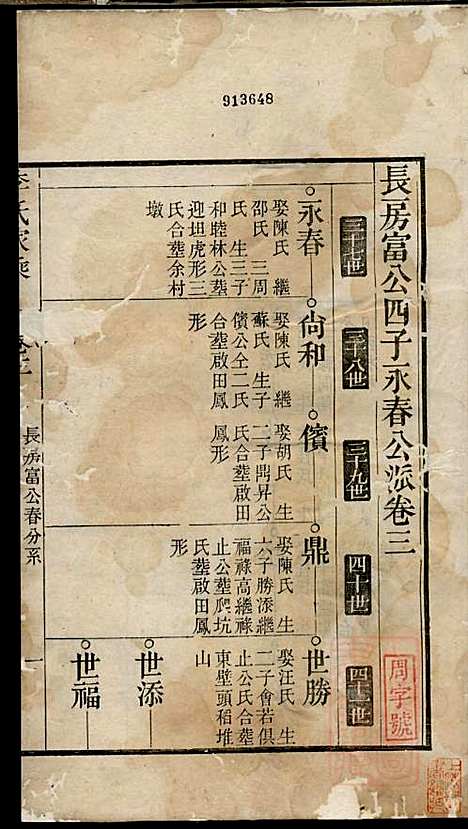 913648
長房富公四子永春公派卷三
三十七世
三十八世
三十九世
四十世
四十一世
永春
娶陳氏 繼
邵氏 三周
氏 生三子
和睦林公塟
迎坦虎形三
氏合塟余村
墩
尙和
娶陳氏 繼
蘇氏 生子
儐公仝二氏
合塟啟田鳳
形
儐
娶胡氏 生
二子鼎昇公
氏合塟啟田
鳳形
鼎
娶陳氏 生
六子勝添繼
福祿高繼祿
止公塟爬坑
氏塟啟田鳳
形
世勝
娶汪氏 生
二子會若俱
止公氏合塟
東壁頭稻堆
山
世添
世福
長房富公春分系
一
周字號